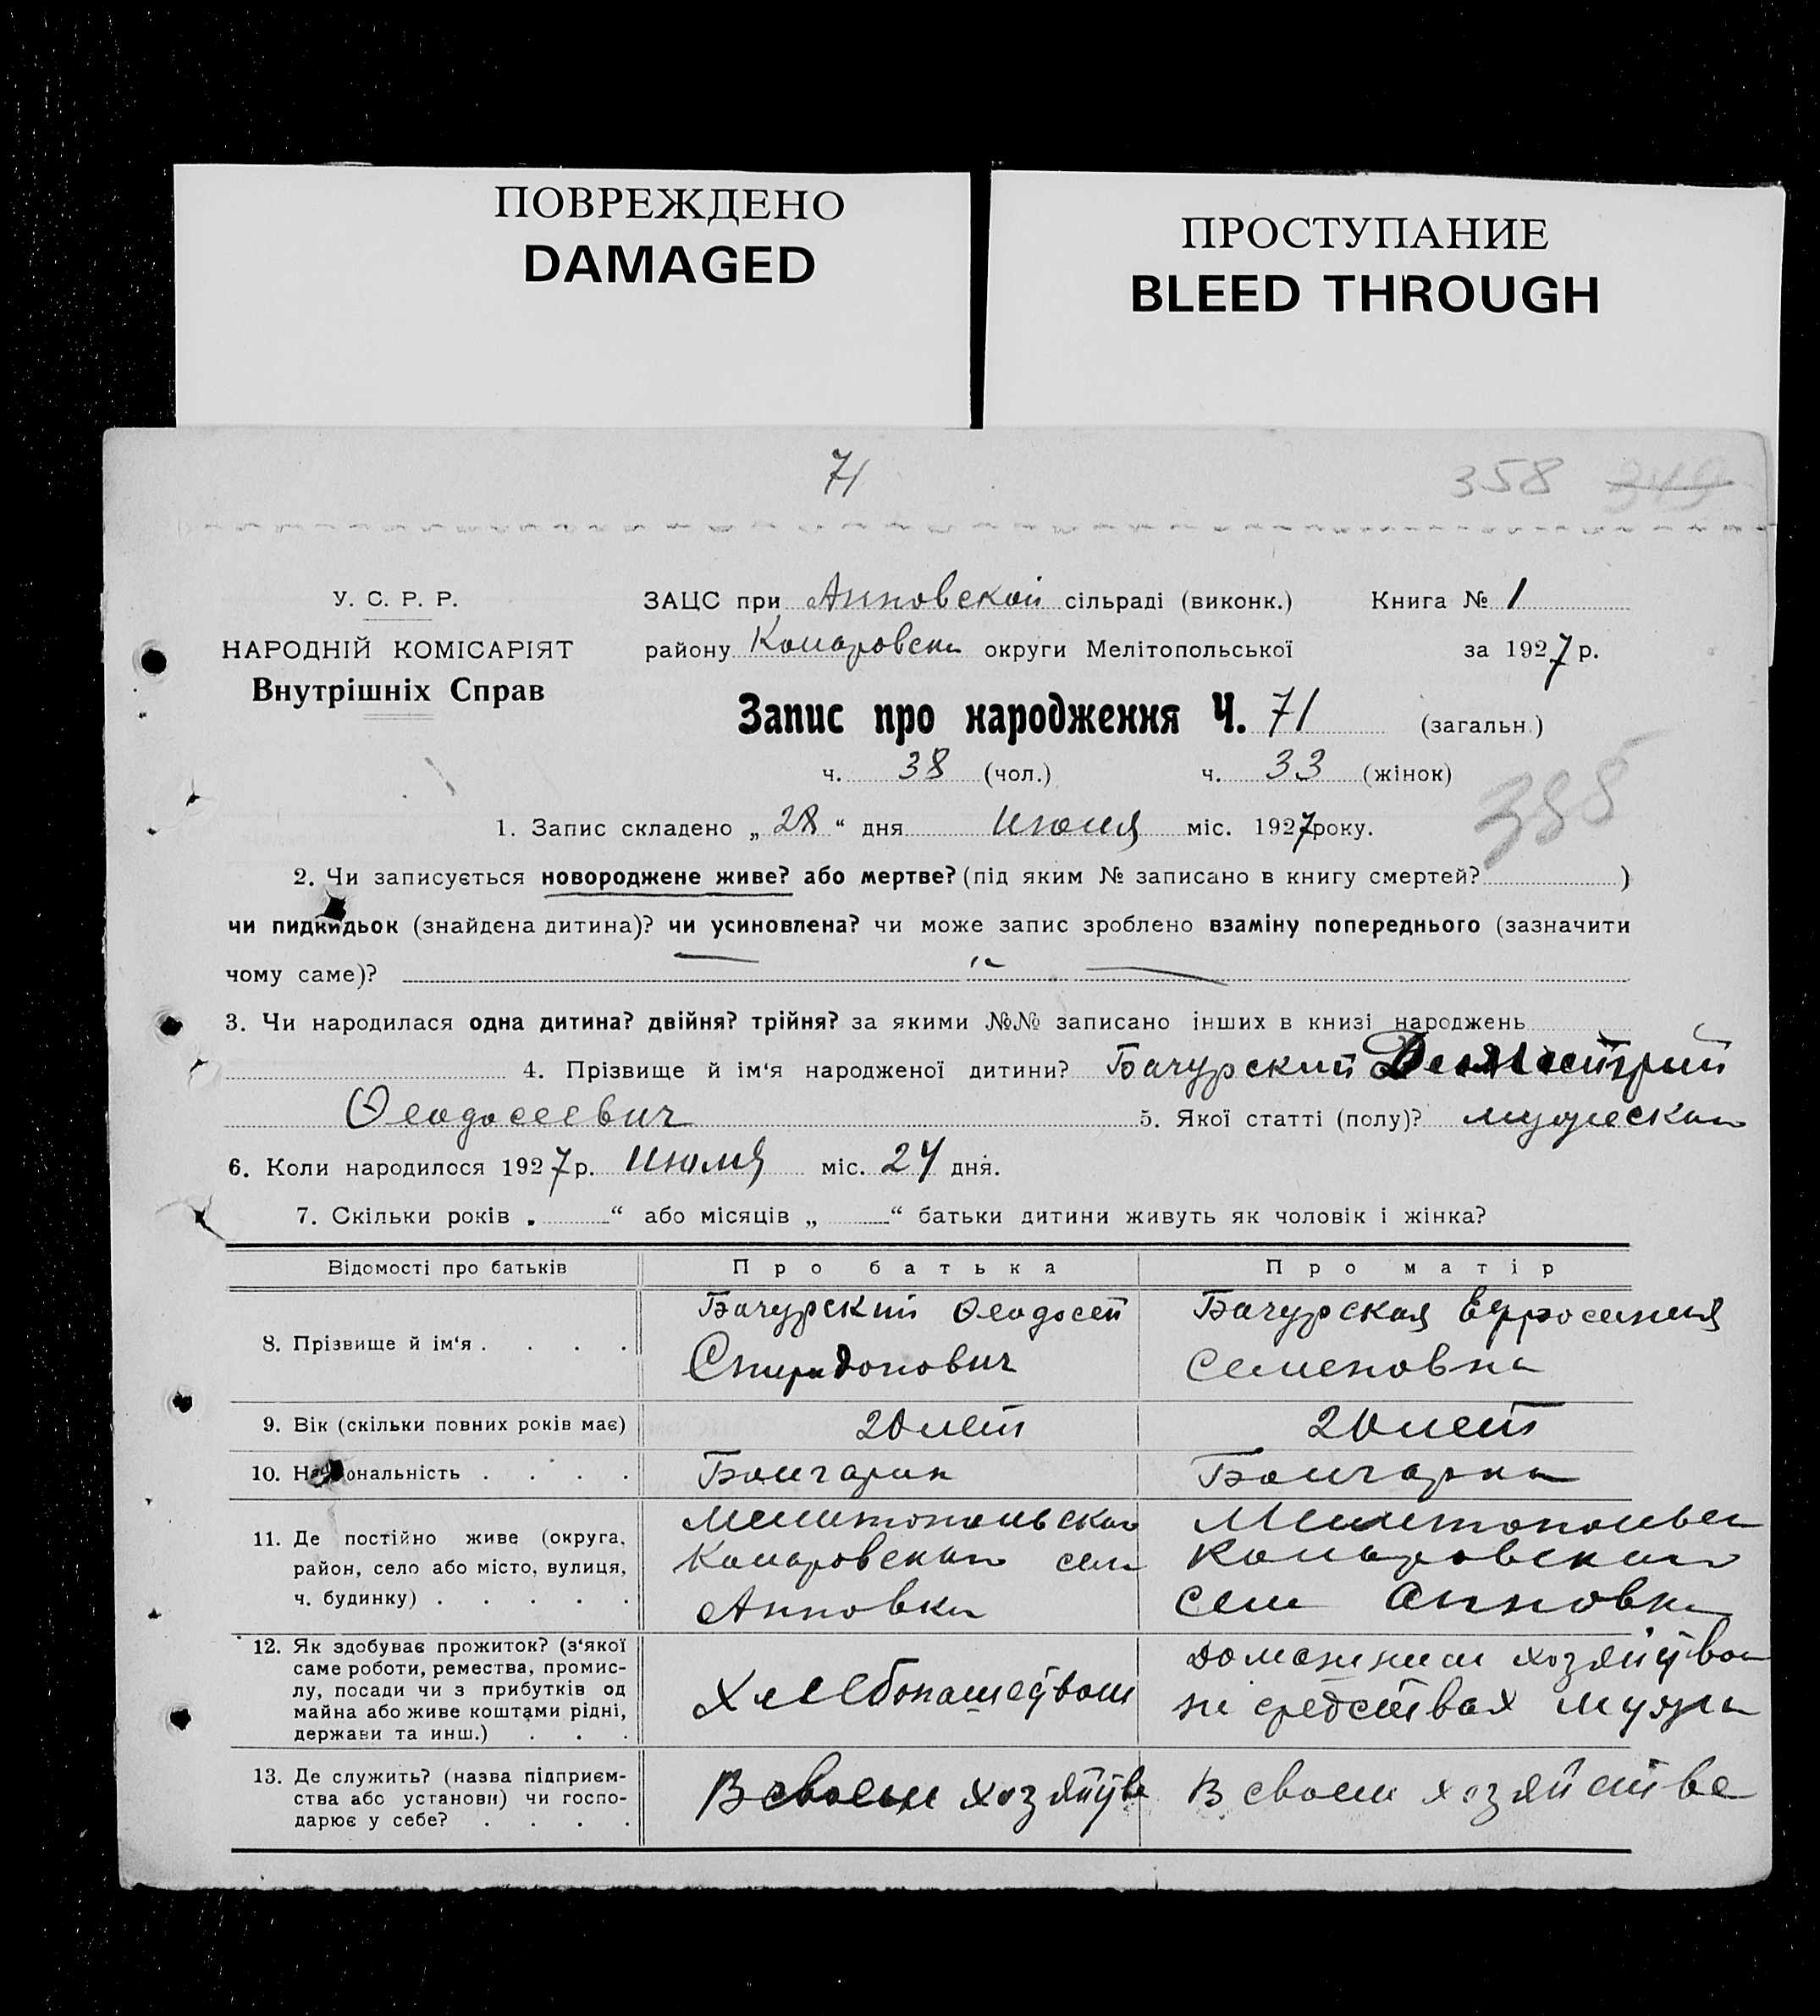 ПОВРЕЖДЕНО
DAMAGED
ПРОСТУПАНИЕ
BLEED THROUGH
71
358 349
У. С. Р. Р.
НАРОДНІЙ КОМІСАРІЯТ
Внутрішніх Справ
ЗАЦС при Анновской сільраді (виконк.) Книга № 1
району Коларовськ округи Мелітопольської за 1927 р.
Запис про народження Ч. 71 (загальн.)
ч. 38 (чол.) ч. 33 (жінок)
1. Запис складено „ 28 “ дня июля міс. 1927 року.
2. Чи записується новороджене живе? або мертве? (під яким № записано в книгу смертей? )
чи пидкидьок (знайдена дитина)? чи усиновлена? чи може запис зроблено взаміну попереднього (зазначити
чому саме)?
3. Чи народилася одна дитина? двійня? трійня? за якими №№ записано інших в книзі народжень
4. Прізвище й ім‘я народженої дитини? Бачурский Дмитрий
Феодосеевич 5. Якої статті (полу)? мужеская
6. Коли народилося 1927 р. июля міс. 24 дня.
7. Скільки років „ “ або місяців „ “ батьки дитини живуть як чоловік і жінка?
Відомості про батьків Про батька Про матір
8. Прізвище й ім‘я . . . .
Бачурский Феодосей
Спиридонович
Бачурская Ефросиния
Семеновна
9. Вік (скільки повних років має) 20 лет 20 лет
10. Національність . . . . Болгарин Болгарка
11. Де постійно живе (округа,
район, село або місто, вулиця,
ч. будинку) . . . . .
Мелитопольская
Коларовского села
Анновка
Мелитопольск
Коларовского
села Анновка
12. Як здобуває прожиток? (з‘якої
саме роботи, ремества, промис-
лу, посади чи з прибутків од
майна або живе коштами рідні,
держави та инш.) . . .
Хлебопашеством
домашним хозяйством
на средствах мужа
13. Де служить? (назва підприєм-
ства або установи) чи госпо-
дарює у себе? . . . .
В своем хозяйстве
В своем хозяйстве